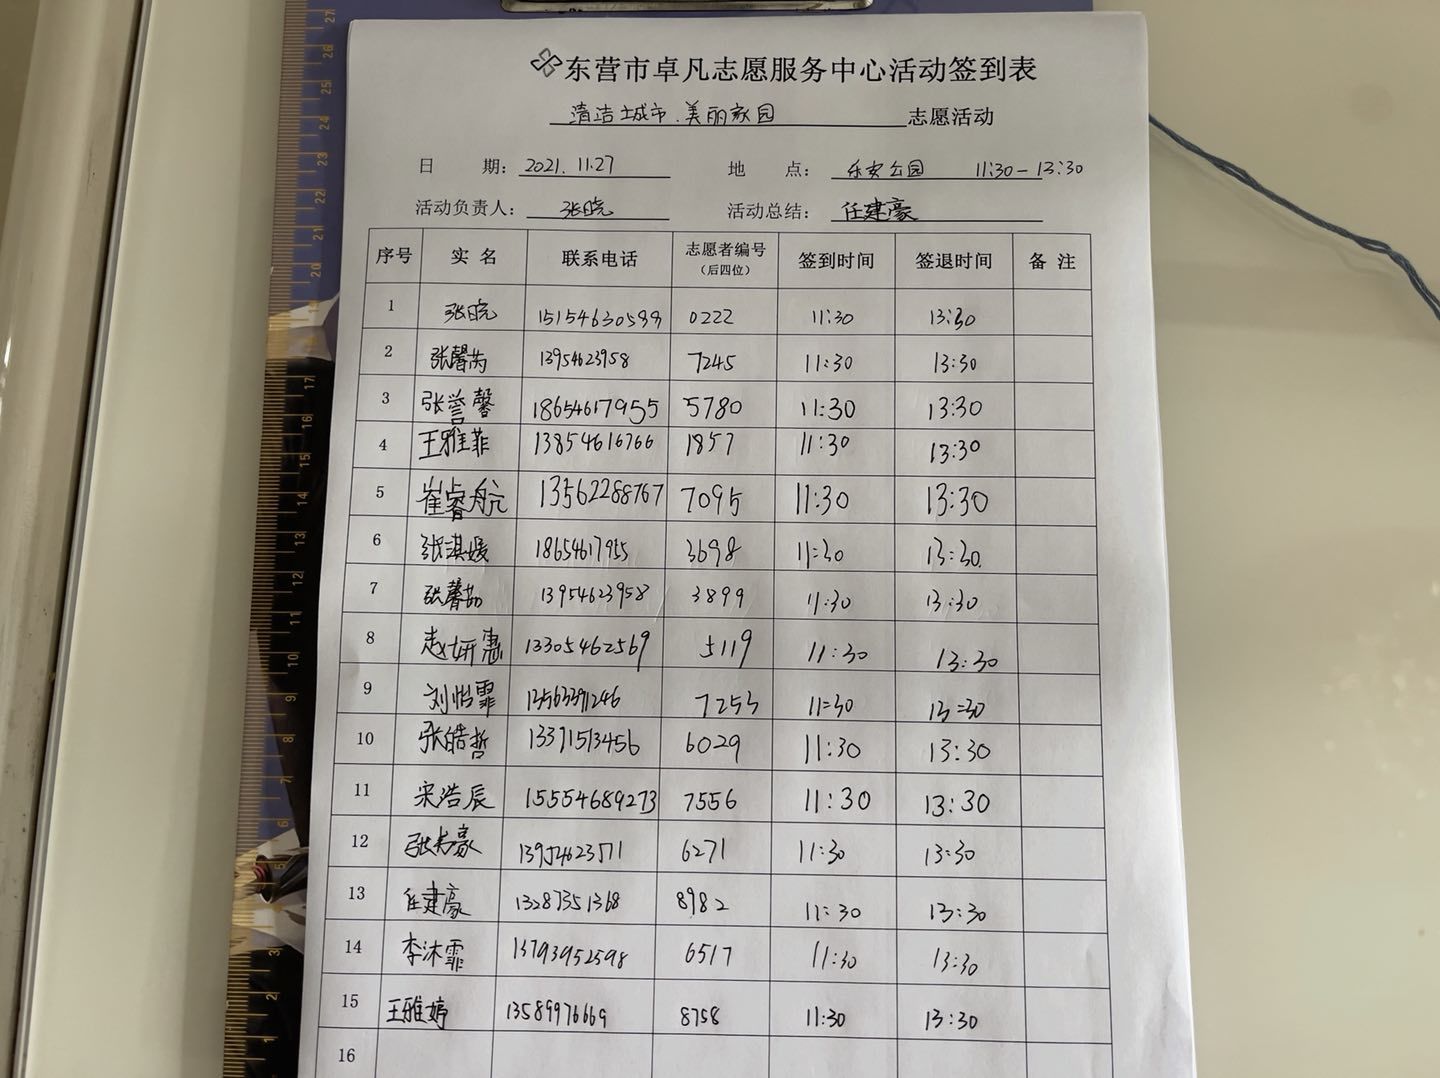 东营市卓凡志愿服务中心活动签到表
清洁城市.美丽家园 志愿活动
日 期: 2021.11.27 地 点: 乐安公园 11:30-13:30
活动负责人: 张晓 活动总结: 任建豪
序号 实名 联系电话 志愿者编号 (后四位) 签到时间 签退时间 备注
1 张晓 15154630599 0222 11:30 13:30
2 张馨芮 13954623958 7245 11:30 13:30
3 张誉馨 18654617955 5780 11:30 13:30
4 王雅菲 13854616766 1857 11:30 13:30
5 崔睿航 13562288767 7095 11:30 13:30
6 张淇媛 18654617955 3698 11:30 13:30
7 张馨 13954623958 3899 11:30 13:30
8 赵妍惠 13305462569 5119 11:30 13:30
9 刘怡霏 13563391246 7253 11:30 13:30
10 张皓哲 13371513456 6029 11:30 13:30
11 宋浩辰 15554689273 7556 11:30 13:30
12 张 豪 13954623511 6271 11:30 13:30
13 任建豪 13287351368 8982 11:30 13:30
14 李沐霏 13793952598 6517 11:30 13:30
15 王雅婷 13589976669 8758 11:30 13:30
16
27
26
25
24
23
22
21
20
17
16
15
14
13
12
11
10
9
8
7
6
5
3
2
1